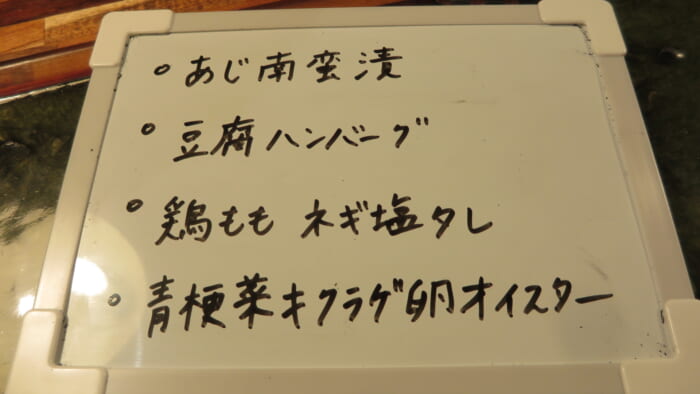 ○ あじ南蛮漬
○ 豆腐ハンバーグ
○ 鶏もも ネギ塩タレ
○ 青梗菜キクラゲ卵オイスター